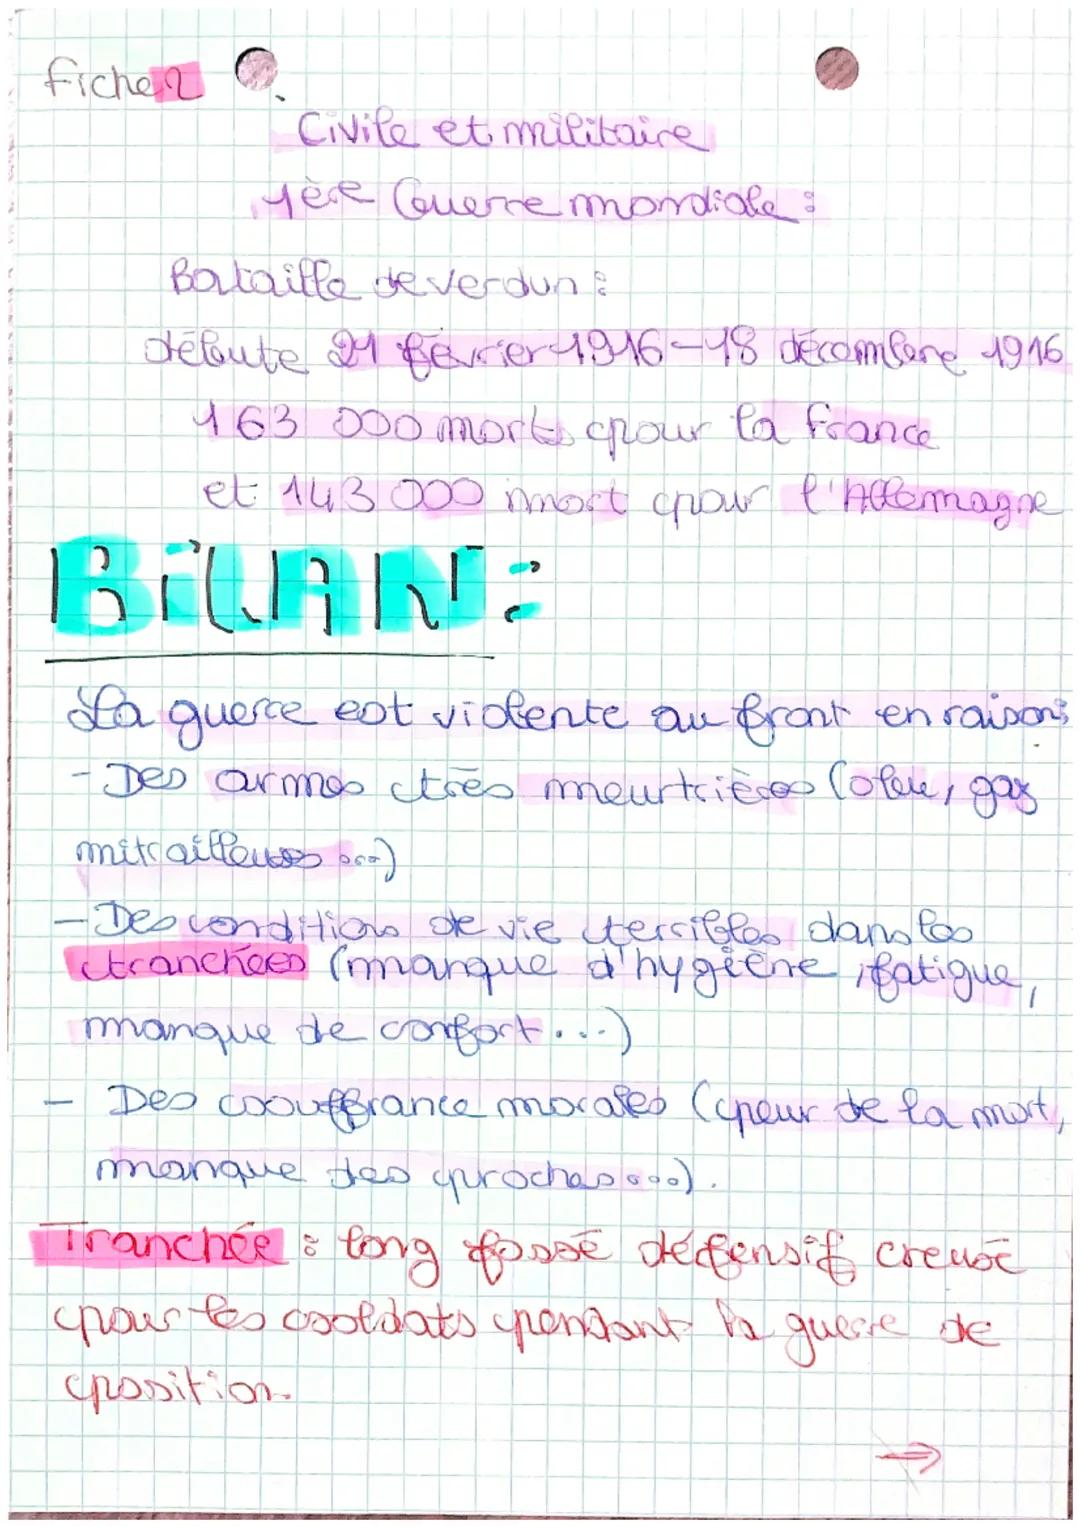 fiche 2
Civile et militaire
1ère Guerre mondiale :
Bataille de verdun :
débute 21 février 1916 - 18 décembre 1916
163 000 morts pour la france
et 143 000 mort pour l'Allemagne
BILAN :
La guerre est violente au front en raison :
- Des armes très meurtrières (obu, gaz
mitrailleuses ...)
- Des condition de vie terribles dans les
tranchées (manque d'hygiène, fatigue,
manque de confort ...)
- Des souffrance morales (peur de la mort,
manque des proches ...).
Tranchée : long fossé défensif creusé
pour les soldats pendant la guerre de
position.
→